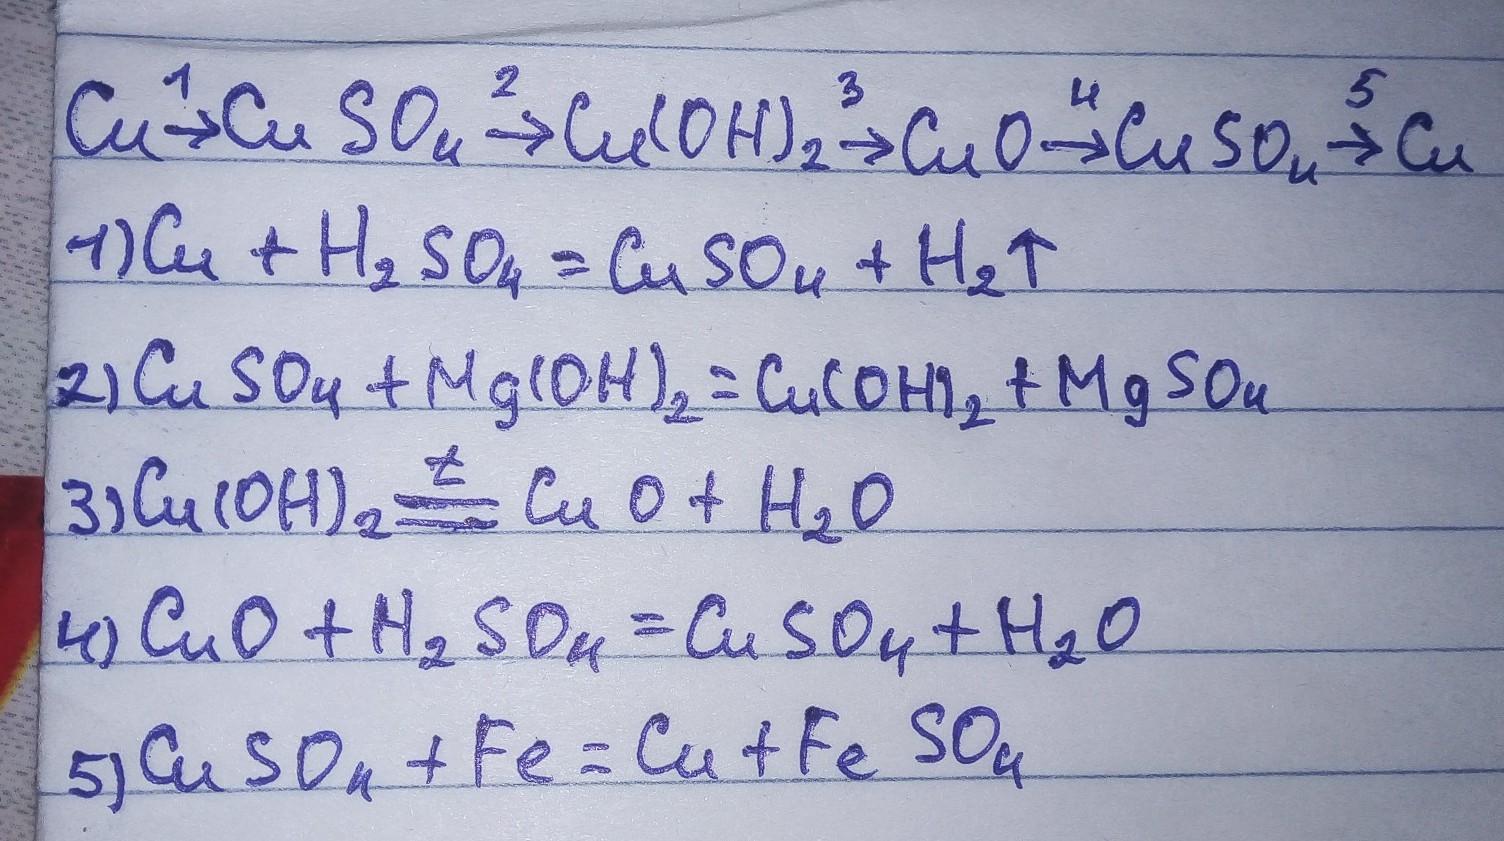 Cu ¹→ CuSO₄ ²→ Cu(OH)₂ ³→ CuO ⁴→ CuSO₄ ⁵→ Cu
1) Cu + H₂SO₄ = CuSO₄ + H₂↑
2) CuSO₄ + Mg(OH)₂ = Cu(OH)₂ + MgSO₄
3) Cu(OH)₂ =ᵗ= CuO + H₂O
4) CuO + H₂SO₄ = CuSO₄ + H₂O
5) CuSO₄ + Fe = Cu + FeSO₄